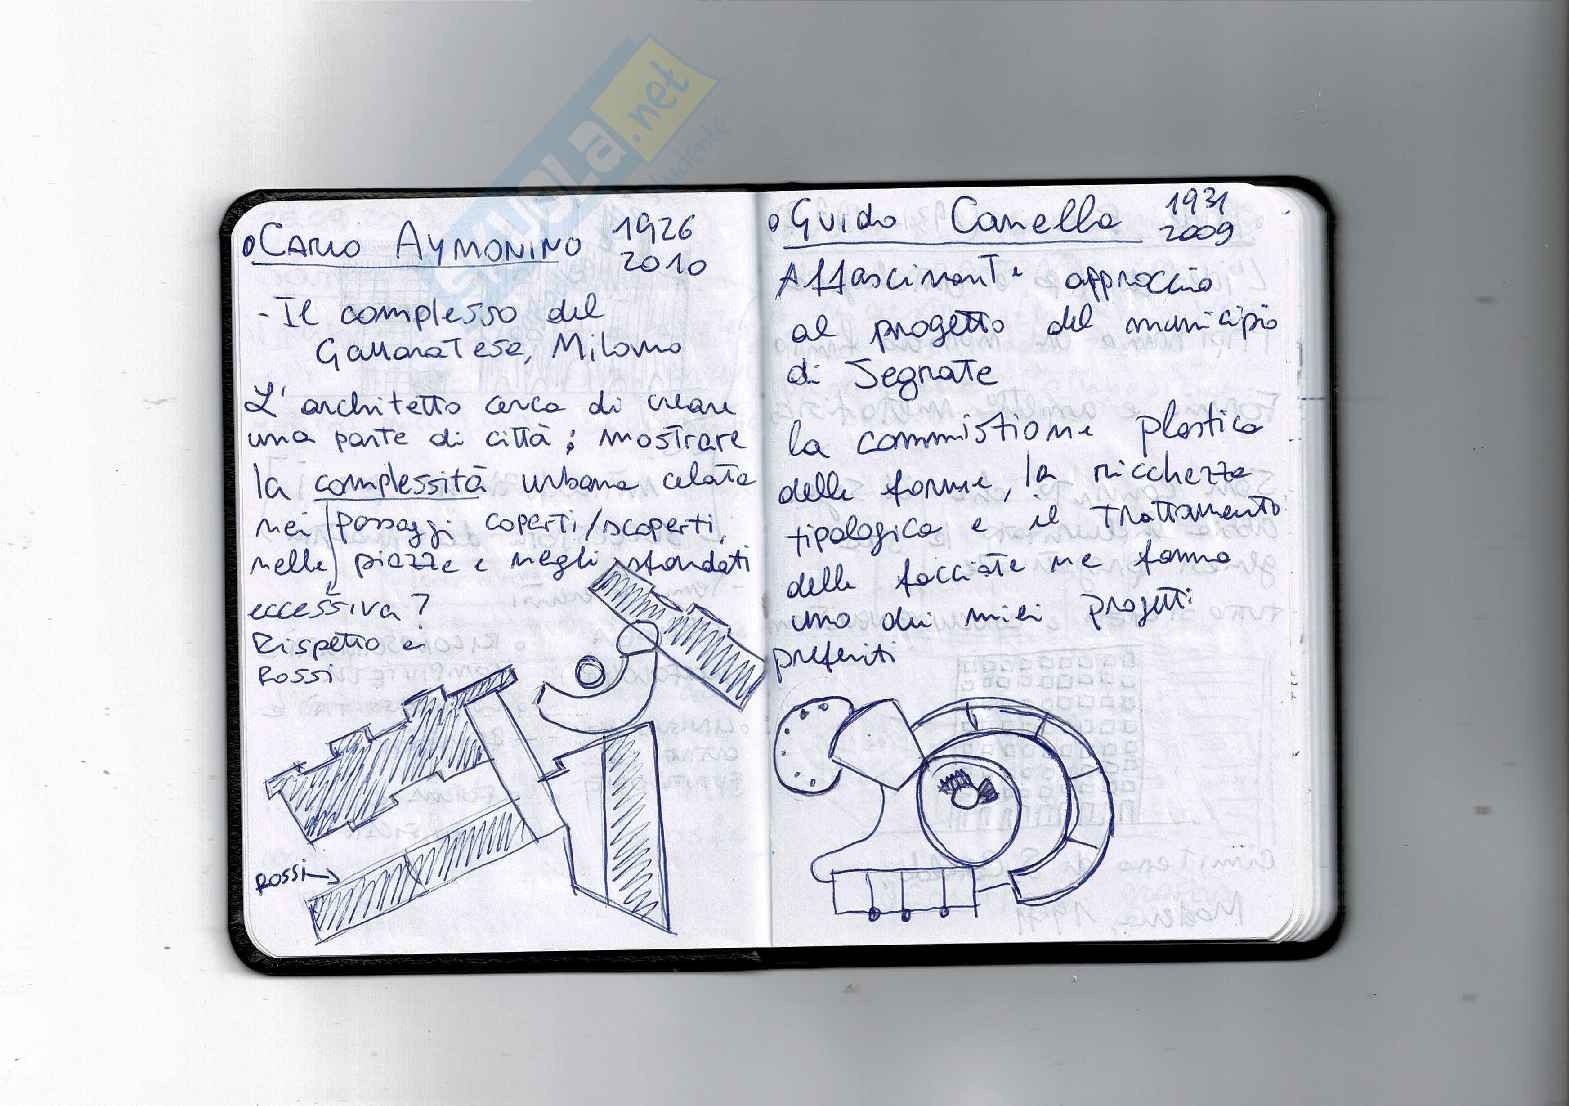 SKUOLA.net
CARLO AYMONINO 1926
2010
- Il complesso del
Gallaratese, Milano
L'architetto cerca di creare
una parte di città; mostrare
la complessità urbana celata
nei passaggi coperti/scoperti,
nelle piazze e negli sfondati
eccessiva?
Rispetto a
Rossi
ROSSI
Guido Canella 1931
2009
Affascinante approccio
al progetto del municipio
di Segrate
la commistione plastica
delle forme, la ricchezza
tipologica e il trattamento
delle facciate ne fanno
uno dei miei progetti
preferiti